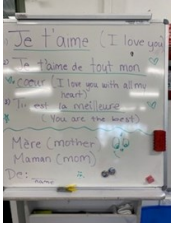 Je t'aime (I love you
Je t'aime de tout mon
coeur (I love you with all my
heart)
Tu est la meilleure
(You are the best)
Mère (mother
Maman (mom)
De:
name